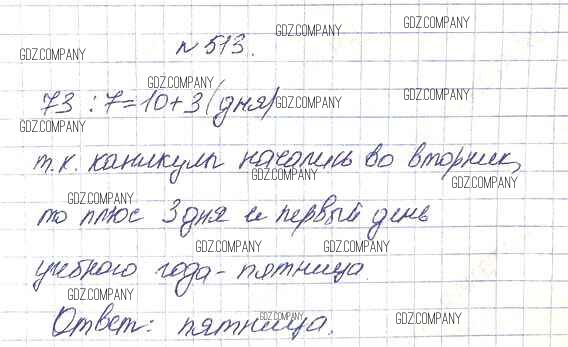 GDZ.COMPANY GDZ.COMPANY
№ 513.
GDZ.COMPANY
GDZ.COMPANY
73 : 7 = 10 + 3 (дня) GDZ.COMPANY GDZ.COMPANY
GDZ.COMPANY
т.к. каникулы начались во вторник,
GDZ.COMPANY GDZ.COMPANY
то плюс 3 дня и первый день
GDZ.COMPANY
GDZ.COMPANY GDZ.COMPANY
учебного года - пятница.
GDZ.COMPANY
Ответ: пятница.
GDZ.COMPANY GDZ.COMPANY